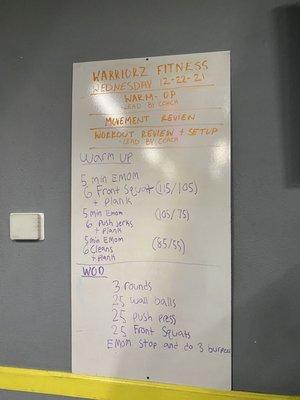 WARRIORZ FITNESS
WEDNESDAY 12-22-21
WARM-UP
-LEAD BY COACH
MOVEMENT REVIEW
WORKOUT REVIEW + SETUP
-LEAD BY COACH
Warm UP
5 min EMOM
6 Front Squat (115/105)
+ Plank
5 min Emom (105/75)
6 Push Jerks
+ Plank
5 min EMOM (85/55)
6 Cleans
+ Plank
WOD
3 rounds
25 wall balls
25 push press
25 Front Squats
EMOM Stop and do 3 burpees